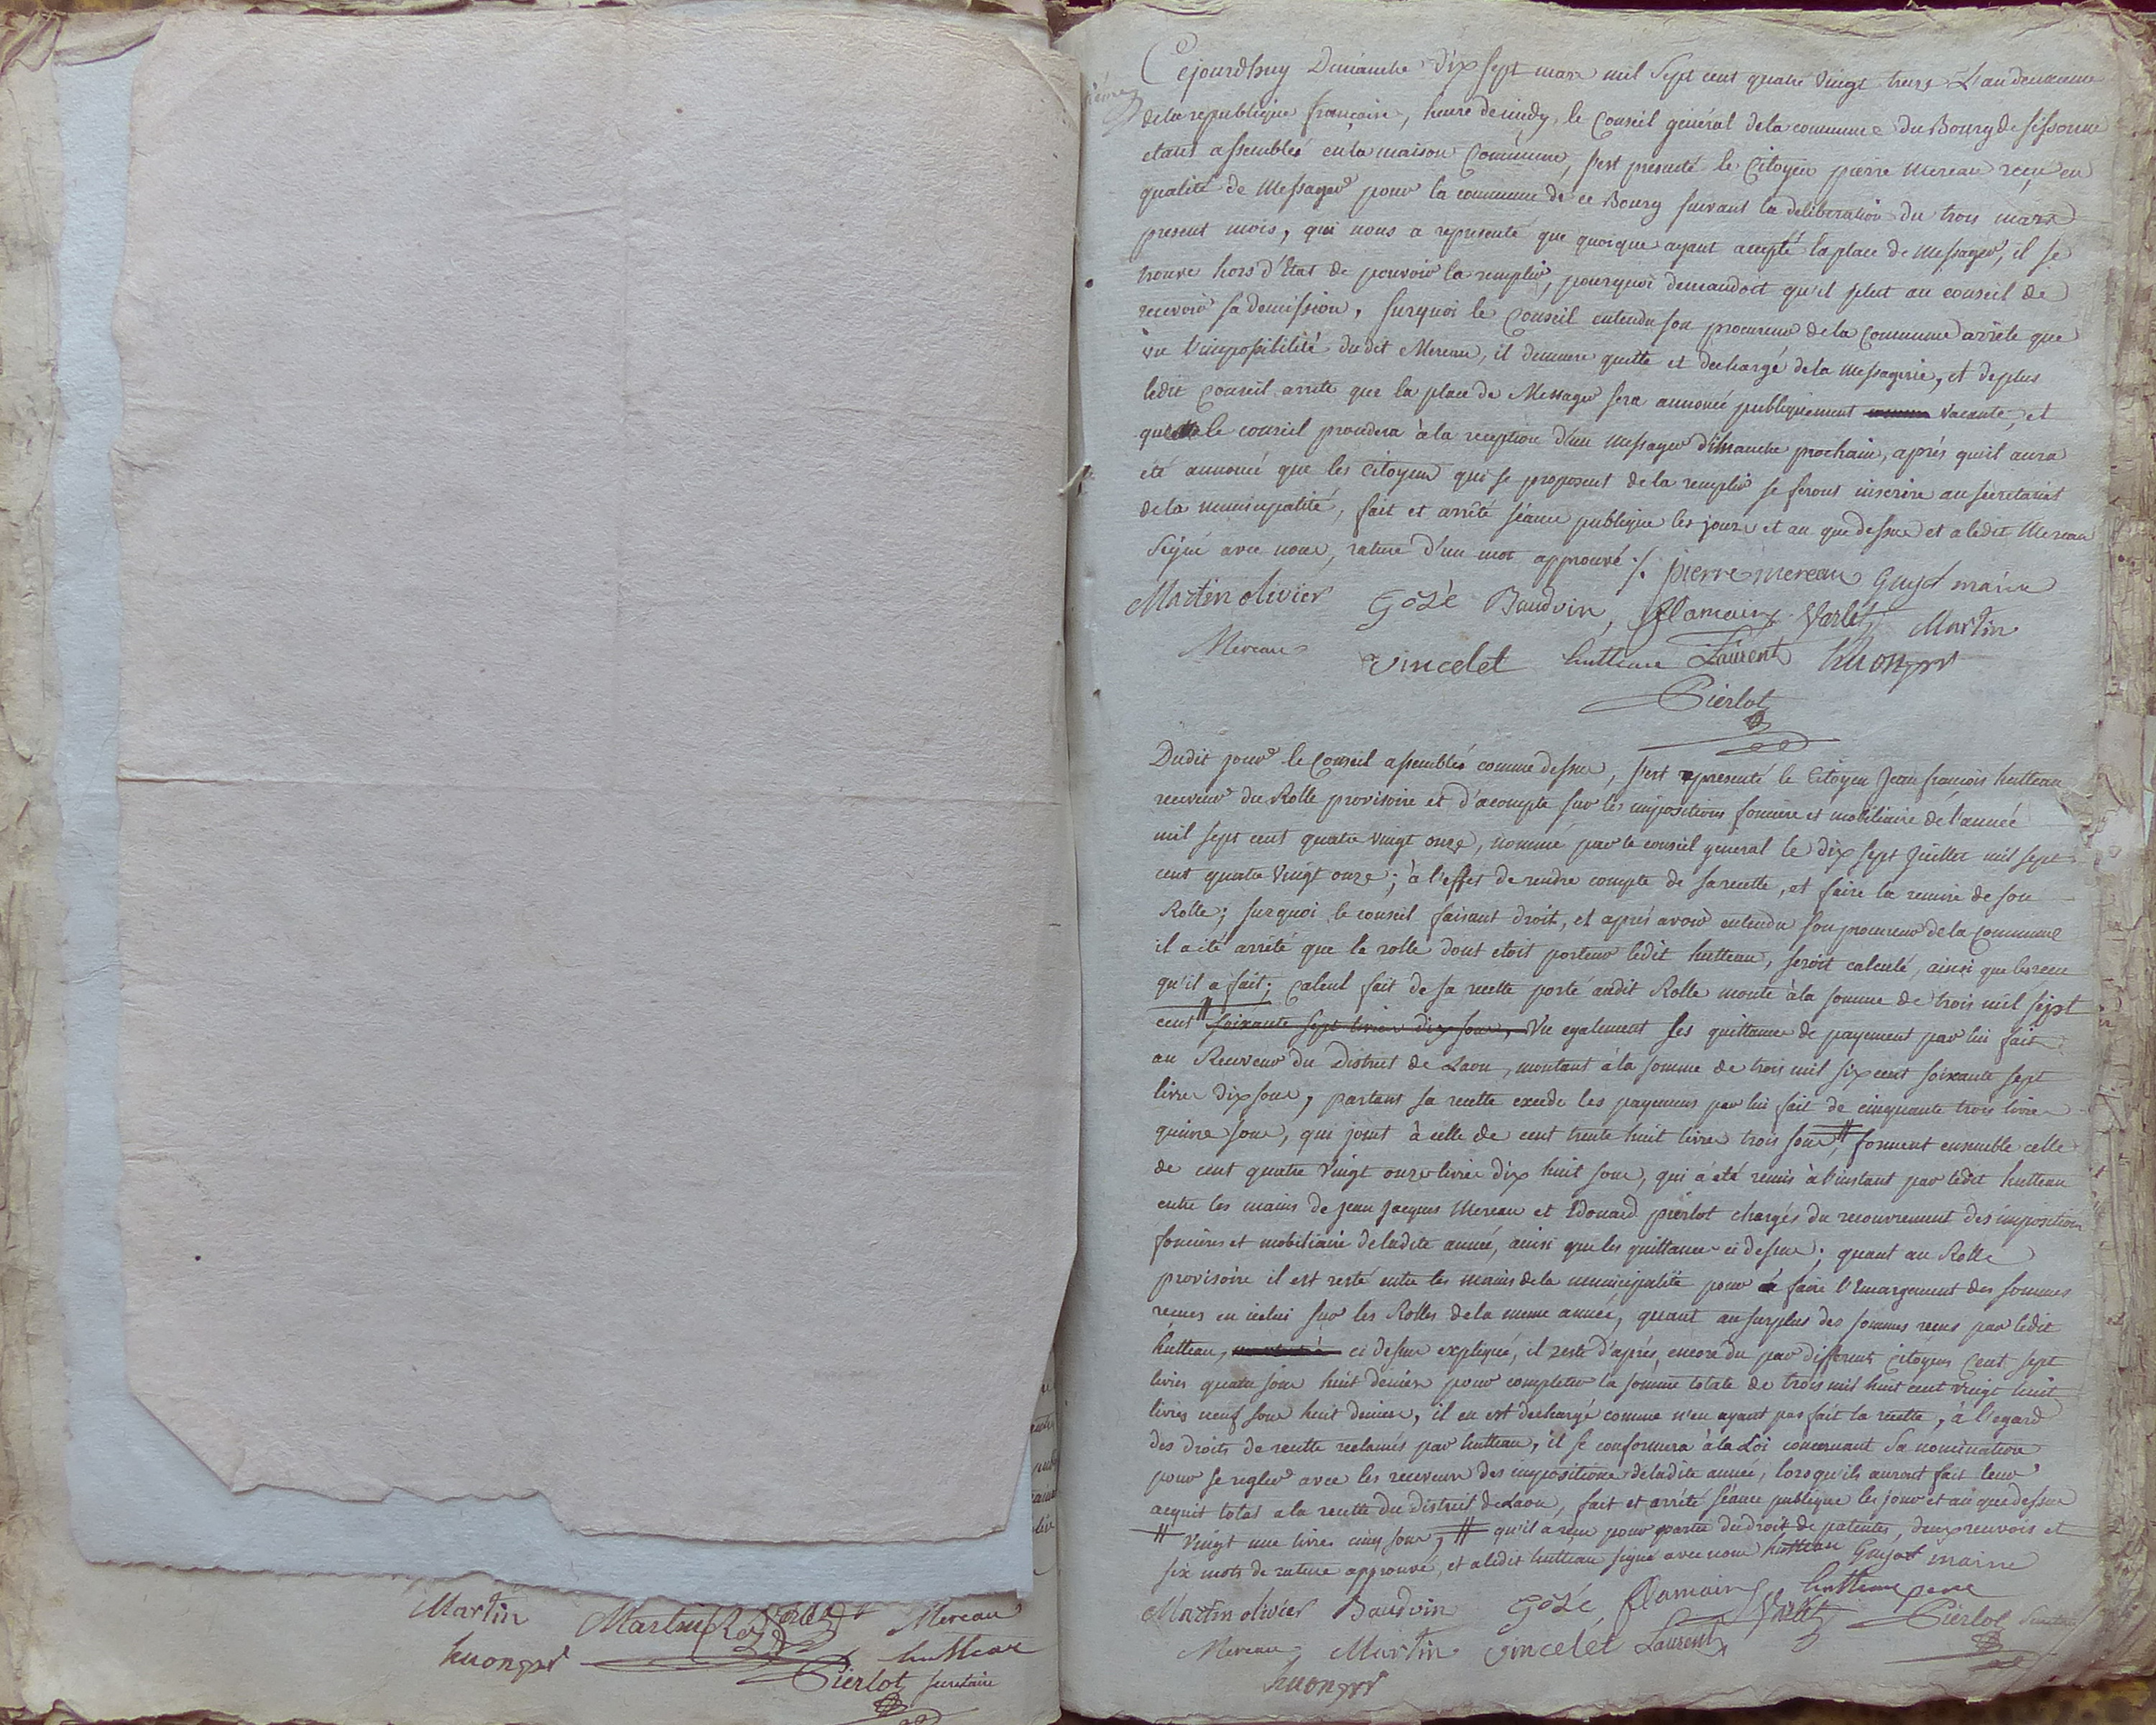 Martin Martin Mereau
huonpr hutteau
Pierlot secretaire
Cejourdhuy Dimanche dix sept mars mil sept cent quatre vingt treize L'an deuxieme
de la republique françoise, heure de midy, le Conseil général de la commune du Bourg de sissonne
etant assemblés en la maison Commune, s'est presenté le Citoyen pierre Mereau reçu en
qualité de Messager pour la commune de ce Bourg suivant la deliberation du trois mars
present mois, qui nous a representé que quoique ayant accepté la place de Messager, il se
trouve hors d'Etat de pouvoir la remplir, pourquoi demandoit qu'il plut au conseil de
recevoir sa demission, surquoi le Conseil entendu son procureur de la Commune arrête que
vu l'impossibilité dudit Mereau, il demeure quitte et dechargé de la messagerie, et deplus
ledit Conseil arrete que la place de Messager sera annoncé publiquement vacante, et
que le conseil procedera à la reception d'un messager dimanche prochain, après qu'il aura
été annoncé que les Citoyens qui se proposent de la remplir se feront inscrire au secretariat
de la municipalité, fait et arrêté séance publique les jour et an que dessus et a ledit Mereau
signé avec nous, rature d'un mot approuvé ./. pierre mereau Guyot maire
Martin olivier Gozé Baudoin, flamain Varlet Martin
Mereau vincelet hutteau Laurent huonpr
Pierlot
Dudit jour le Conseil assemblés comme dessus, s'est representé le Citoyen Jean françois hutteau
receveur du Rolle provisoire et d'acompte sur les impositions fonciere et mobiliaire de l'année
mil sept cent quatre vingt onze, nommé par le conseil general le dix sept Juillet mil sept
cent quatre vingt onze; à l'effet de rendre compte de sa recette, et faire la remise de son
Rolle; surquoi le conseil faisant droit, et après avoir entendu son procureur de la Commune
il a été arrêté que le rolle dont etoit porteur ledit hutteau, seroit calculé, ainsi que les recus
qu'il a fait; Calcul fait de sa recette porté audit Rolle monte à la somme de trois mil sept
cent # soixante sept livres dix sous, Vu egalement les quittances de payement par lui fait
au Receveur du District de Laon, montant à la somme de trois mil six cent soixante sept
livres dix sous, partant sa recette excede les payemens par lui fait de cinquante trois livres
quinze sous, qui joint à celle de cent trente huit livres trois sous # forment ensemble celle
de cent quatre vingt onze livres dix huit sous, qui a été remis à l'instant par ledit hutteau
entre les mains de Jean Jacques Mereau et Edouard pierlot chargés du recouvrement des imposition
foncieres et mobiliaire de ladite année, ainsi que les quittances ci dessus; quant au Rolle
provisoire il est resté entre les mains de la municipalité pour faire l'Emargement des sommes
recues en icelui sur les Rolles de la meme année, quant au surplus des sommes recus par ledit
hutteau, ci dessus expliqué, il reste d'après, encore du par differents Citoyens Cent sept
livres quatre sous huit deniers pour completer la somme totale de trois mil huit cent vingt huit
livres neuf sous huit deniers, il en est dechargé comme n'en ayant pas fait la recette, à l'egard
des droits de recette reclamés par hutteau, il se conformera à la Loi concernant sa nomination
pour se regler avec les receveurs des impositions de ladite année, lorsqu'ils auront fait leur
acquit total a la recette du District de Laon, fait et arrêté séance publique les jour et an que dessus
# Vingt une livres cinq sous, # qu'il a recu pour partie du droit de patentes, deux renvois et
six mots de rature approuvé, et a ledit hutteau signé avec nous hutteau Guyot maire
Martin olivier Baudoin Gozé flamain Varlet hutteau pere
Mereau Martin vincelet Laurent Pierlot
huonpr